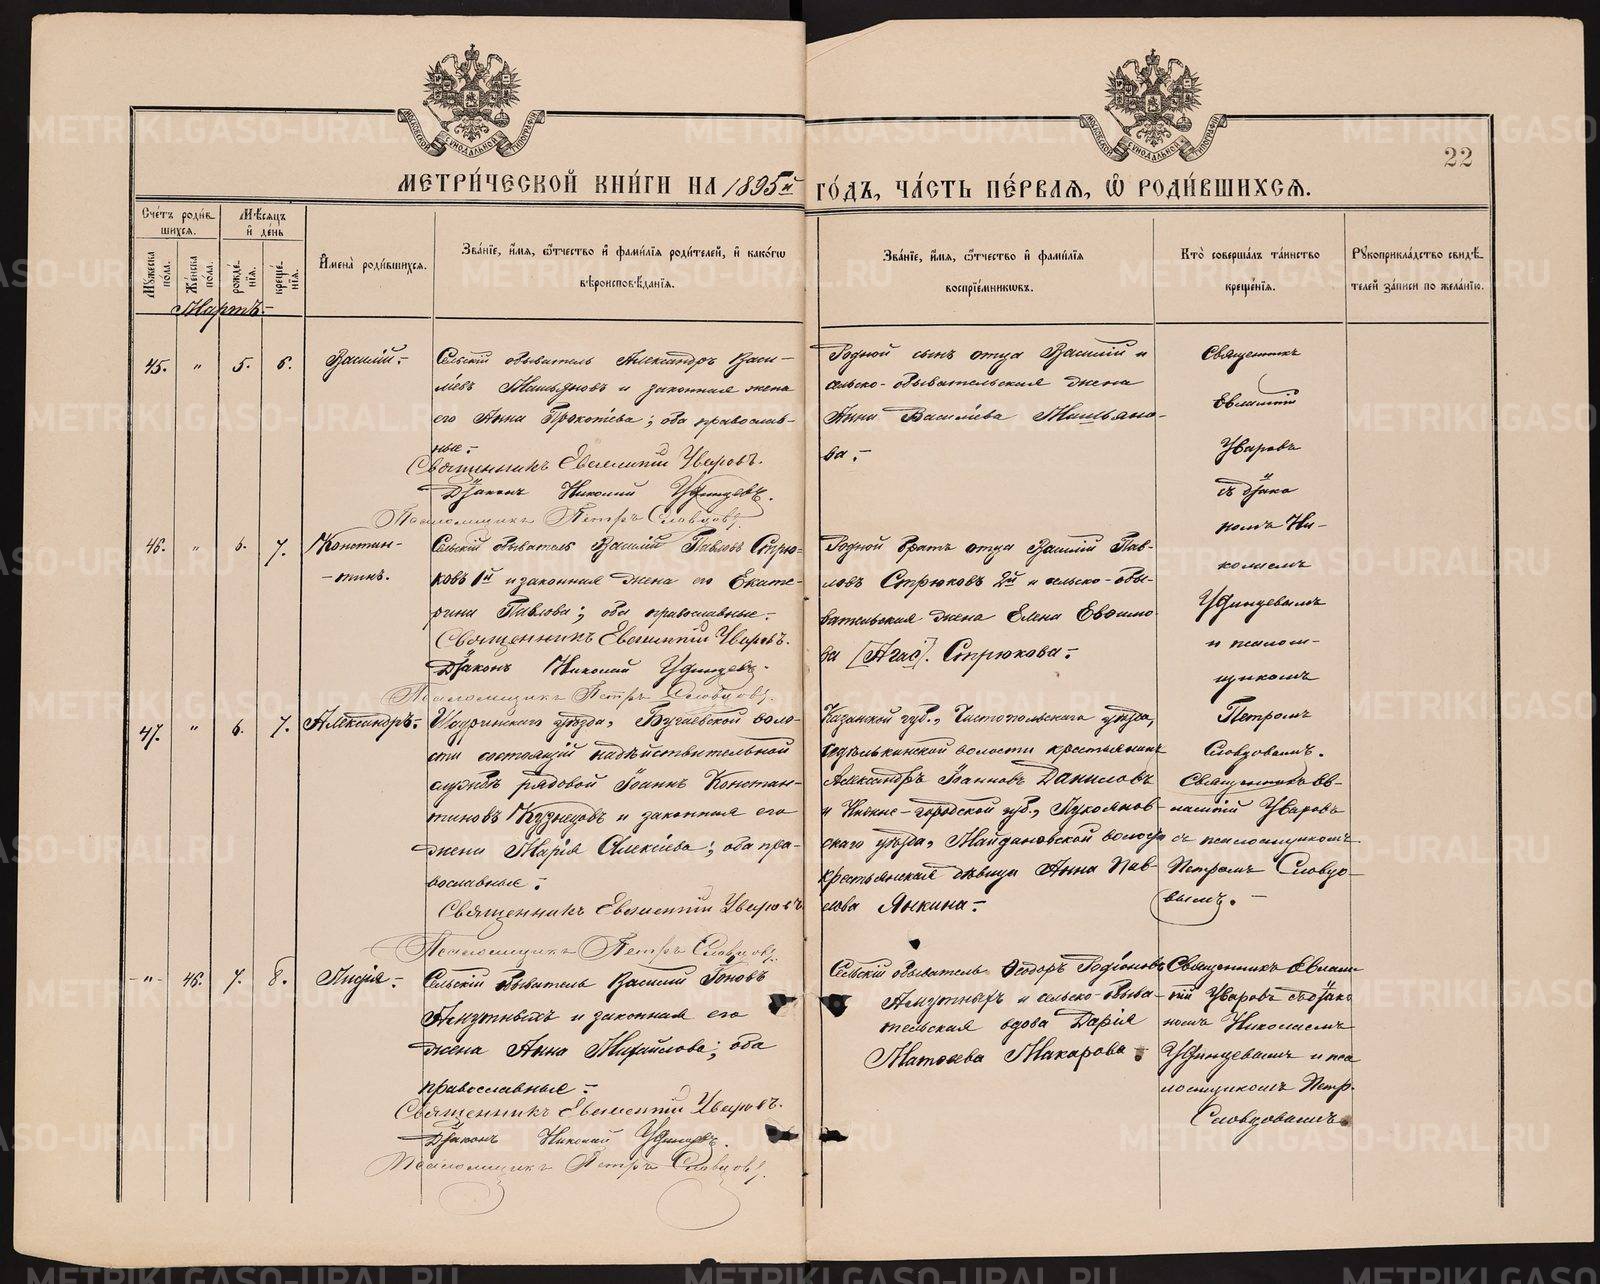 22
МЕТРИ́ЧЕСКОЙ КНИ́ГИ НА 1895й ГО́ДЪ, ЧА́СТЬ ПЕ́РВАЯ, Ѡ РОДИ́ВШИХСЯ.
Сче́тъ роди́вшихся.
Му́жеска пола.
Же́нска пола.
Мѣсяцъ и де́нь
рожде́нїя.
креще́нїя.
И҆мена̀ роди́вшихся.
Зва́нїе, и҆́мя, ѻ҆́тчество и҆ фами́лїя роди́телей, и҆ како́гѡ
вѣроисповѣ́данїя.
Зва́нїе, и҆́мя, ѻ҆́тчество и҆ фами́лїя
воспрїе́мникѡвъ.
Кто̀ соверша́лъ та́инство
креще́нїя.
Рꙋкоприкла́дство свидѣ́-
телей за́писи по жела́нїю.
Мартъ.-
45. " 5. 6.
Василій.-
Сельскій обыватель Александръ Васи-
ліевъ и законная жена
его Анна Прокопіева; оба православ-
ные.-
Священникъ Евлампій Уваровъ.
Діаконъ Николай Удинцевъ.
Псаломщикъ Петръ Словцовъ.
Родной сынъ отца Василій и
сельско-обывательская жена
Анна Васильева
ва.-
Священникъ
Евлампій
Уваровъ
съ діако
номъ Ни-
колаемъ
Удинцевымъ
и псалом-
щикомъ
Петромъ
Словцовымъ.
46. " 6. 7.
Констан-
-тинъ.
Сельскій обыватель Василій Павловъ Стрю-
ковъ 1й и законная жена его Екате-
рина Павлова; оба православные.-
Священникъ Евлампій Уваровъ.
Діаконъ Николай Удинцевъ.
Псаломщикъ Петръ Словцовъ.
Родной братъ отца Василій Пав-
ловъ Стрюковъ 2й и сельско-обы-
вательская жена Елена
ва Стрюкова.-
47. " 6. 7.
Александръ.-
Шадринскаго уѣзда, Бугаевской воло-
сти состоящій на дѣйствительной
службѣ рядовой Іоаннъ Констан-
тиновъ Кузнецовъ и законная его
жена Марія Алексіева; оба пра-
вославные.-
Священникъ Евлампій Уваровъ
Псаломщикъ Петръ Словцовъ.
Казанской губ., Чистопольскаго уѣзда,
волости крестьянинъ
Александръ Іоанновъ Даниловъ
и Ниже-городской губ., Лукоянов-
скаго уѣзда, Майдановской волости
крестьянская дѣвица Анна Пав-
лова Янкина.-
Священникъ Ев-
лампій Уваровъ
съ псаломщикомъ
Петромъ Словцо-
вымъ.-
-"- 46. 7. 8.
Лидія.-
Сельскій обыватель Василій Іоновъ
и законная его
жена Анна Михайлова; оба
православные.-
Священникъ Евлампій Уваровъ.
Діаконъ Николай Удинцевъ.
Псаломщикъ Петръ Словцовъ.
Сельскій обыватель Ѳеодоръ Родіоновъ
и сельско-обыва-
тельская вдова Дарія
Матѳеева Макарова.
Священникъ Евлам-
пій Уваровъ съ діако
номъ Николаемъ
Удинцевымъ и пса
ломщикомъ Петр.
Словцовымъ.